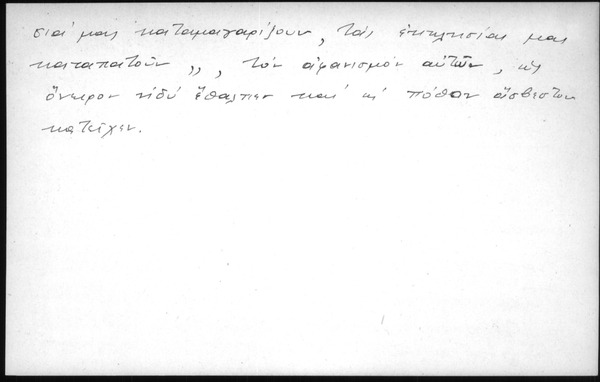 σιαί μας καταμαγαρίζουν, τάς ἐκκλησίας μας
καταπατοῦν ,,, τόν ἀφανισμόν αὐτῶν, ὡς
ὄνειρον ἡδύ ἔθαλπεν καί ὡς πόθον ἄσβεστον
κατεῖχεν.